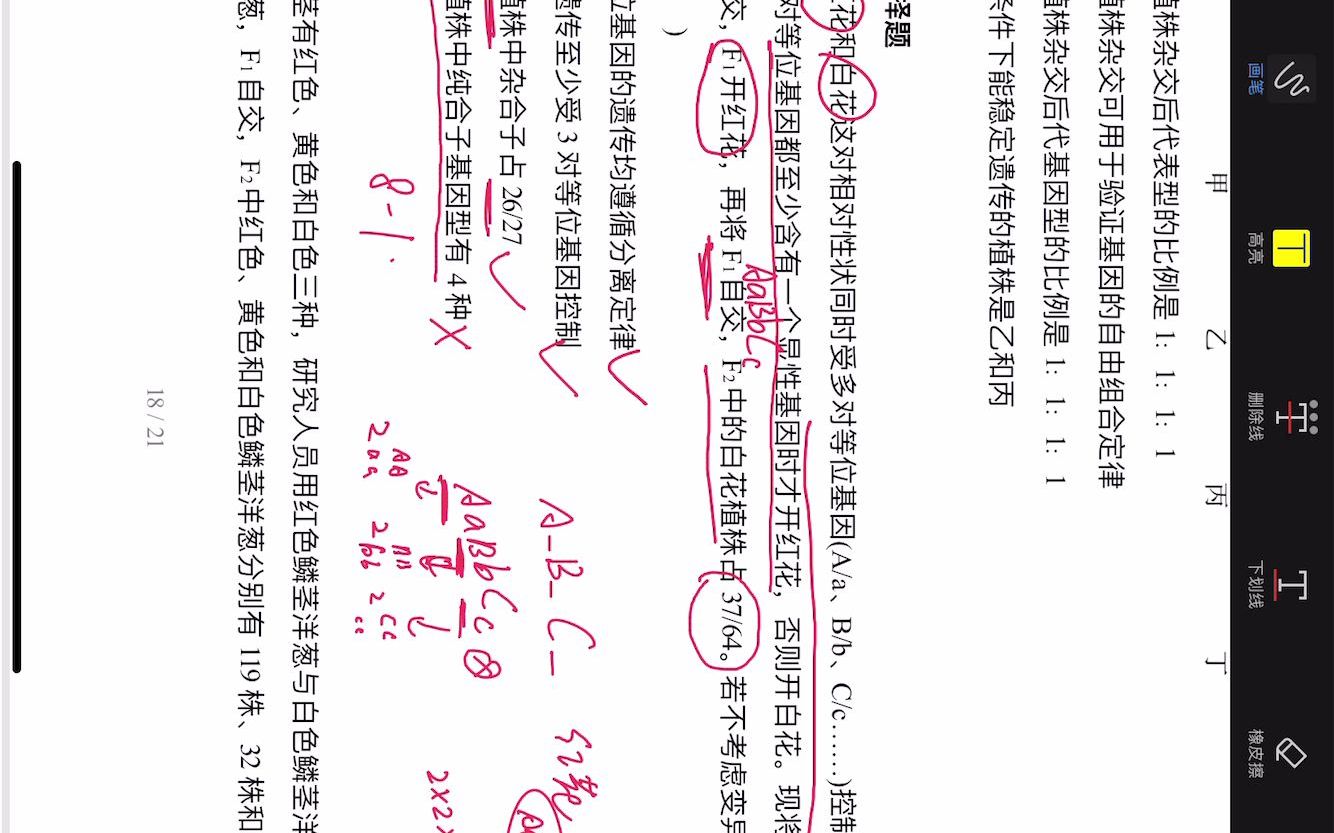 画笔
高亮
删除线
下划线
橡皮擦
甲 乙 丙 丁
植株杂交后代表型的比例是 1: 1: 1: 1
植株杂交可用于验证基因的自由组合定律
植株杂交后代基因型的比例是 1: 1: 1: 1
条件下能稳定遗传的植株是乙和丙
择题
红花和白花这对相对性状同时受多对等位基因(A/a、B/b、C/c……)控制
对等位基因都至少含有一个显性基因时才开红花，否则开白花。现将
AaBbCc
交，F₁开红花，再将 F₁自交，F₂中的白花植株占 37/64。若不考虑变异
)
位基因的遗传均遵循分离定律
遗传至少受 3 对等位基因控制
A-B-C-
植株中杂合子占 26/27
植株中纯合子基因型有 4 种
AaBbCc
8-1
AA CC
2 aa 2 bb 2 cc
2×2×
茎有红色、黄色和白色三种，研究人员用红色鳞茎洋葱与白色鳞茎洋
葱，F₁自交，F₂中红色、黄色和白色鳞茎洋葱分别有 119 株、32 株和
18 / 21